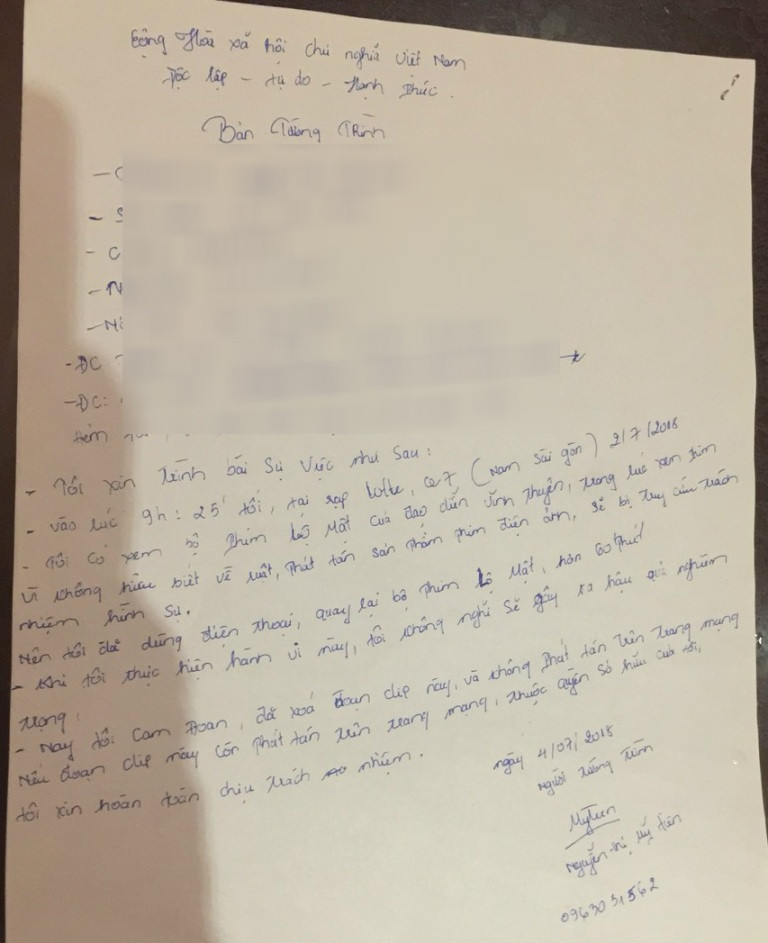 Cộng Hòa xã hội chủ nghĩa Việt Nam
Độc lập - tự do - Hạnh Phúc.
Bản Tường Trình
- C
- S
- C
- N
- N
- ĐC
- ĐC:
- Tôi xin trình bài sự việc như sau:
- vào lúc 9h: 25' tối, tại rạp lotte, Q7 (Nam Sài gòn) 2/7/2018
- Tôi có xem bộ phim lộ mặt của đạo diễn vĩnh thuyên, trong lúc xem phim
vì không hiểu biết về luật, phát tán sản phẩm phim điện ảnh, sẽ bị truy cứu trách
nhiệm hình sự.
Nên tôi đã dùng điện thoại, quay lại bộ phim Lộ Mặt, hơn 60 phút
- khi tôi thực hiện hành vi này, tôi không nghỉ sẽ gây ra hậu quả nghiêm
trọng.
- Nay tôi Cam Đoan, đã xoá đoạn clip này, và không phát tán trên trang mạng
Nếu đoạn clip này còn phát tán trên trang mạng, thuộc quyền sở hữu của tôi,
tôi xin hoàn toàn chịu trách nhiệm.
ngày 4/07/2018
người tường trình
MyTien
Nguyễn thị mỹ tiên